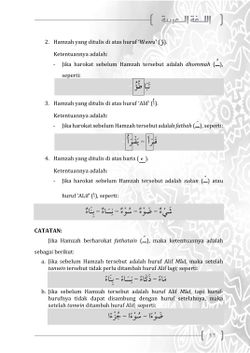 اللغة العربية
2. Hamzah yang ditulis di atas huruf "Wawu" (ؤ).
Ketentuannya adalah:
- Jika harokat sebelum Hamzah tersebut adalah dhommah (ـُ),
seperti:
3. Hamzah yang ditulis di atas huruf "Alif" (أ).
Ketentuannya adalah:
- Jika harokat sebelum Hamzah tersebut adalah fathah (ـَ), seperti:
4. Hamzah yang ditulis di atas baris ( ء ).
Ketentuannya adalah:
- Jika harokat sebelum Hamzah tersebut adalah sukun (ـْ) atau
huruf "ALif" (ا), seperti:
CATATAN:
Jika Hamzah berharokat fathatain (ـً), maka ketentuannya adalah
sebagai berikut:
a. Jika sebelum Hamzah tersebut adalah huruf Alif Mad, maka setelah
tanwin tersebut tidak perlu ditambah huruf Alif lagi; seperti:
b. Jika sebelum Hamzah tersebut adalah huruf Alif Mad, tapi huruf-
hurufnya tidak dapat disambung dengan huruf setelahnya, maka
setelah tanwin ditambah huruf Alif; seperti:
ضَوْءًا – سُوْءًا – جُزْءًا